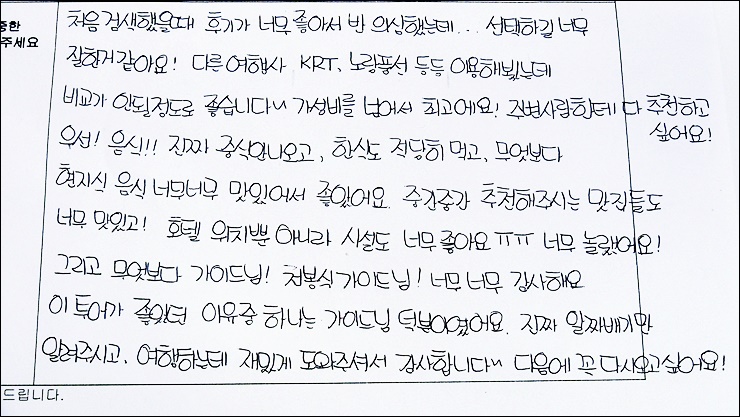 중한
주세요
처음 검색했을때 후기가 너무 좋아서 반 의심했는데... 선택하길 너무
잘한거 같아요! 다른 여행사 KRT, 노랑풍선 등등 이용해봤는데
비교가 안될정도로 좋습니다~ 가성비를 넘어서 최고에요! 주변사람한테 다 추천하고
싶어요!
우선! 음식!! 진짜 중식안나오고, 한식도 적당히 먹고, 무엇보다
현지식 음식 너무너무 맛있어서 좋았어요. 중간중간 추천해주시는 맛집들도
너무 맛있고! 호텔 위치뿐 아니라 시설도 너무 좋아요ㅠㅠ 너무 놀랐어요!
그리고 무엇보다 가이드님! 천봉식가이드님! 너무 너무 감사해요
이 투어가 좋았던 이유중 하나는 가이드님 덕분이였어요. 진짜 알짜배기만
알려주시고, 여행하는데 재밌게 도와주셔서 감사합니다~ 다음에 꼭 다시오고싶어요!
드립니다.